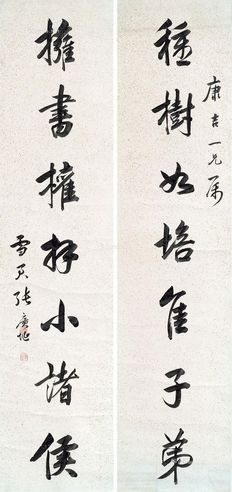 康吉一兄属
種樹如培佳子弟
擁書權拜小諸侯
雪張